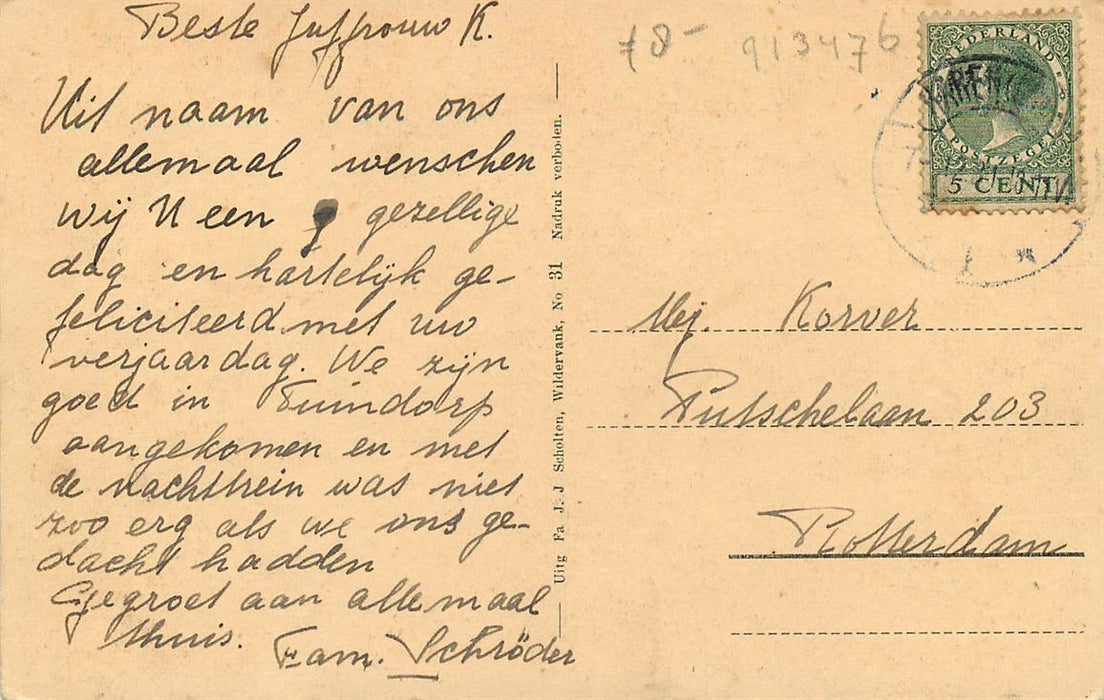 Beste Juffrouw K.
Uit naam van ons
allemaal wenschen
wij U een gezellige
dag en hartelijk ge-
feliciteerd met uw
verjaardag. We zijn
goed in Tuindorp
aangekomen en met
de nachttrein was niet
zoo erg als we ons ge-
dacht hadden
Gegroet aan allemaal
thuis.
Fam. Schröder
Uitg Fa J. J Scholten, Wildervank, No 31 Nadruk verboden.
78-
913476
NEDERLAND
POSTZEGEL
5 CENT
Mej. Korver
Putschelaan 203
Rotterdam